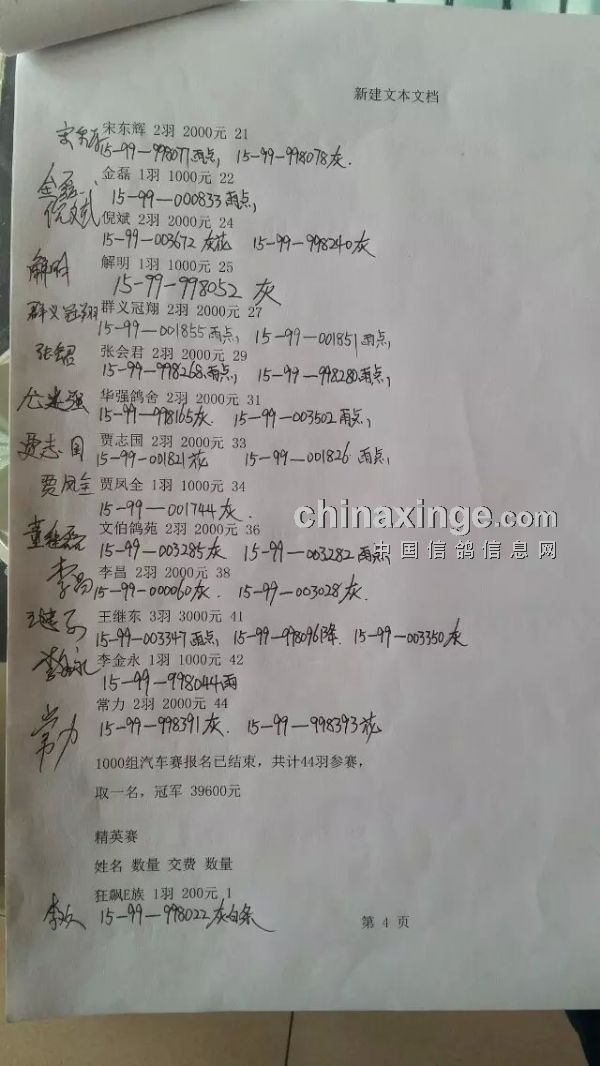 新建文本文档
宋东辉 2羽 2000元 21
15-99-998077雨点, 15-99-998078灰.
金磊 1羽 1000元 22
金磊 15-99-000833雨点,
倪斌 倪斌 2羽 2000元 24
15-99-003672 灰花 15-99-998240灰
解明 解明 1羽 1000元 25
15-99-998052 灰
群义冠翔 群义冠翔 2羽 2000元 27
15-99-001855雨点, 15-99-001851雨点,
张会君 2羽 2000元 29
15-99-998268雨点, 15-99-998280雨点,
华强鸽舍 2羽 2000元 31
15-99-998165灰. 15-99-003502雨点,
贾志国 贾志国 2羽 2000元 33
15-99-001821花 15-99-001826 雨点,
贾凤全 贾凤全 1羽 1000元 34
15-99-001744灰.
chinaxinge.com
文伯鸽苑 2羽 2000元 36
15-99-003285灰 15-99-003282雨点
中国信鸽信息网
李昌 李昌 2羽 2000元 38
15-99-000060灰. 15-99-003028灰.
王继东 3羽 3000元 41
15-99-003347雨点, 15-99-998096降. 15-99-003350灰
李金永 1羽 1000元 42
15-99-998044雨
常力 常力 2羽 2000元 44
15-99-998391灰. 15-99-998393花
1000组汽车赛报名已结束，共计44羽参赛，
取一名，冠军 39600元
精英赛
姓名 数量 交费 数量
狂飙E族 1羽 200元 1
15-99-998022灰白条
第 4 页